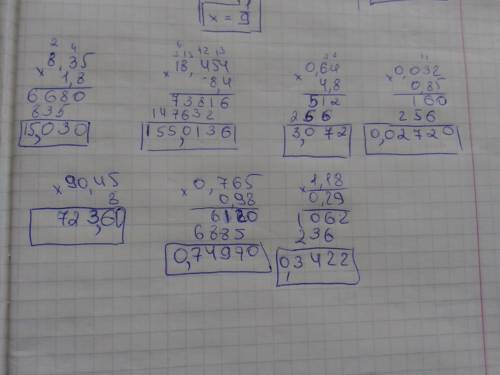 x = 9
2 4
8,35
× 1,8
6680
835
15,030
6
3 13 12 13
18,454
× 8,4
73816
147632
155,0136
0,64
× 4,8
512
256
3,072
0,032
× 0,85
160
256
0,02720
× 90,45
8
723,60
× 0,765
0,98
6120
6885
0,74970
× 1,18
0,29
1062
236
0,3422